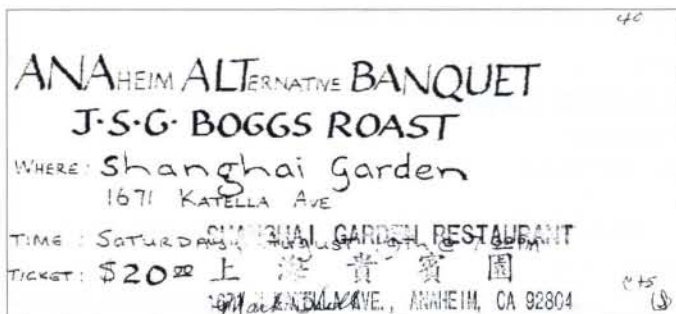 40
ANAHEIM ALTERNATIVE BANQUET
J·S·G· BOGGS ROAST
WHERE: Shanghai Garden
1671 KATELLA AVE
TIME: SATURDAY, August @ PM
SHANGHAI GARDEN RESTAURANT
TICKET: $20.00
上海貴賓園
1671 W. KATELLA AVE., ANAHEIM, CA 92804